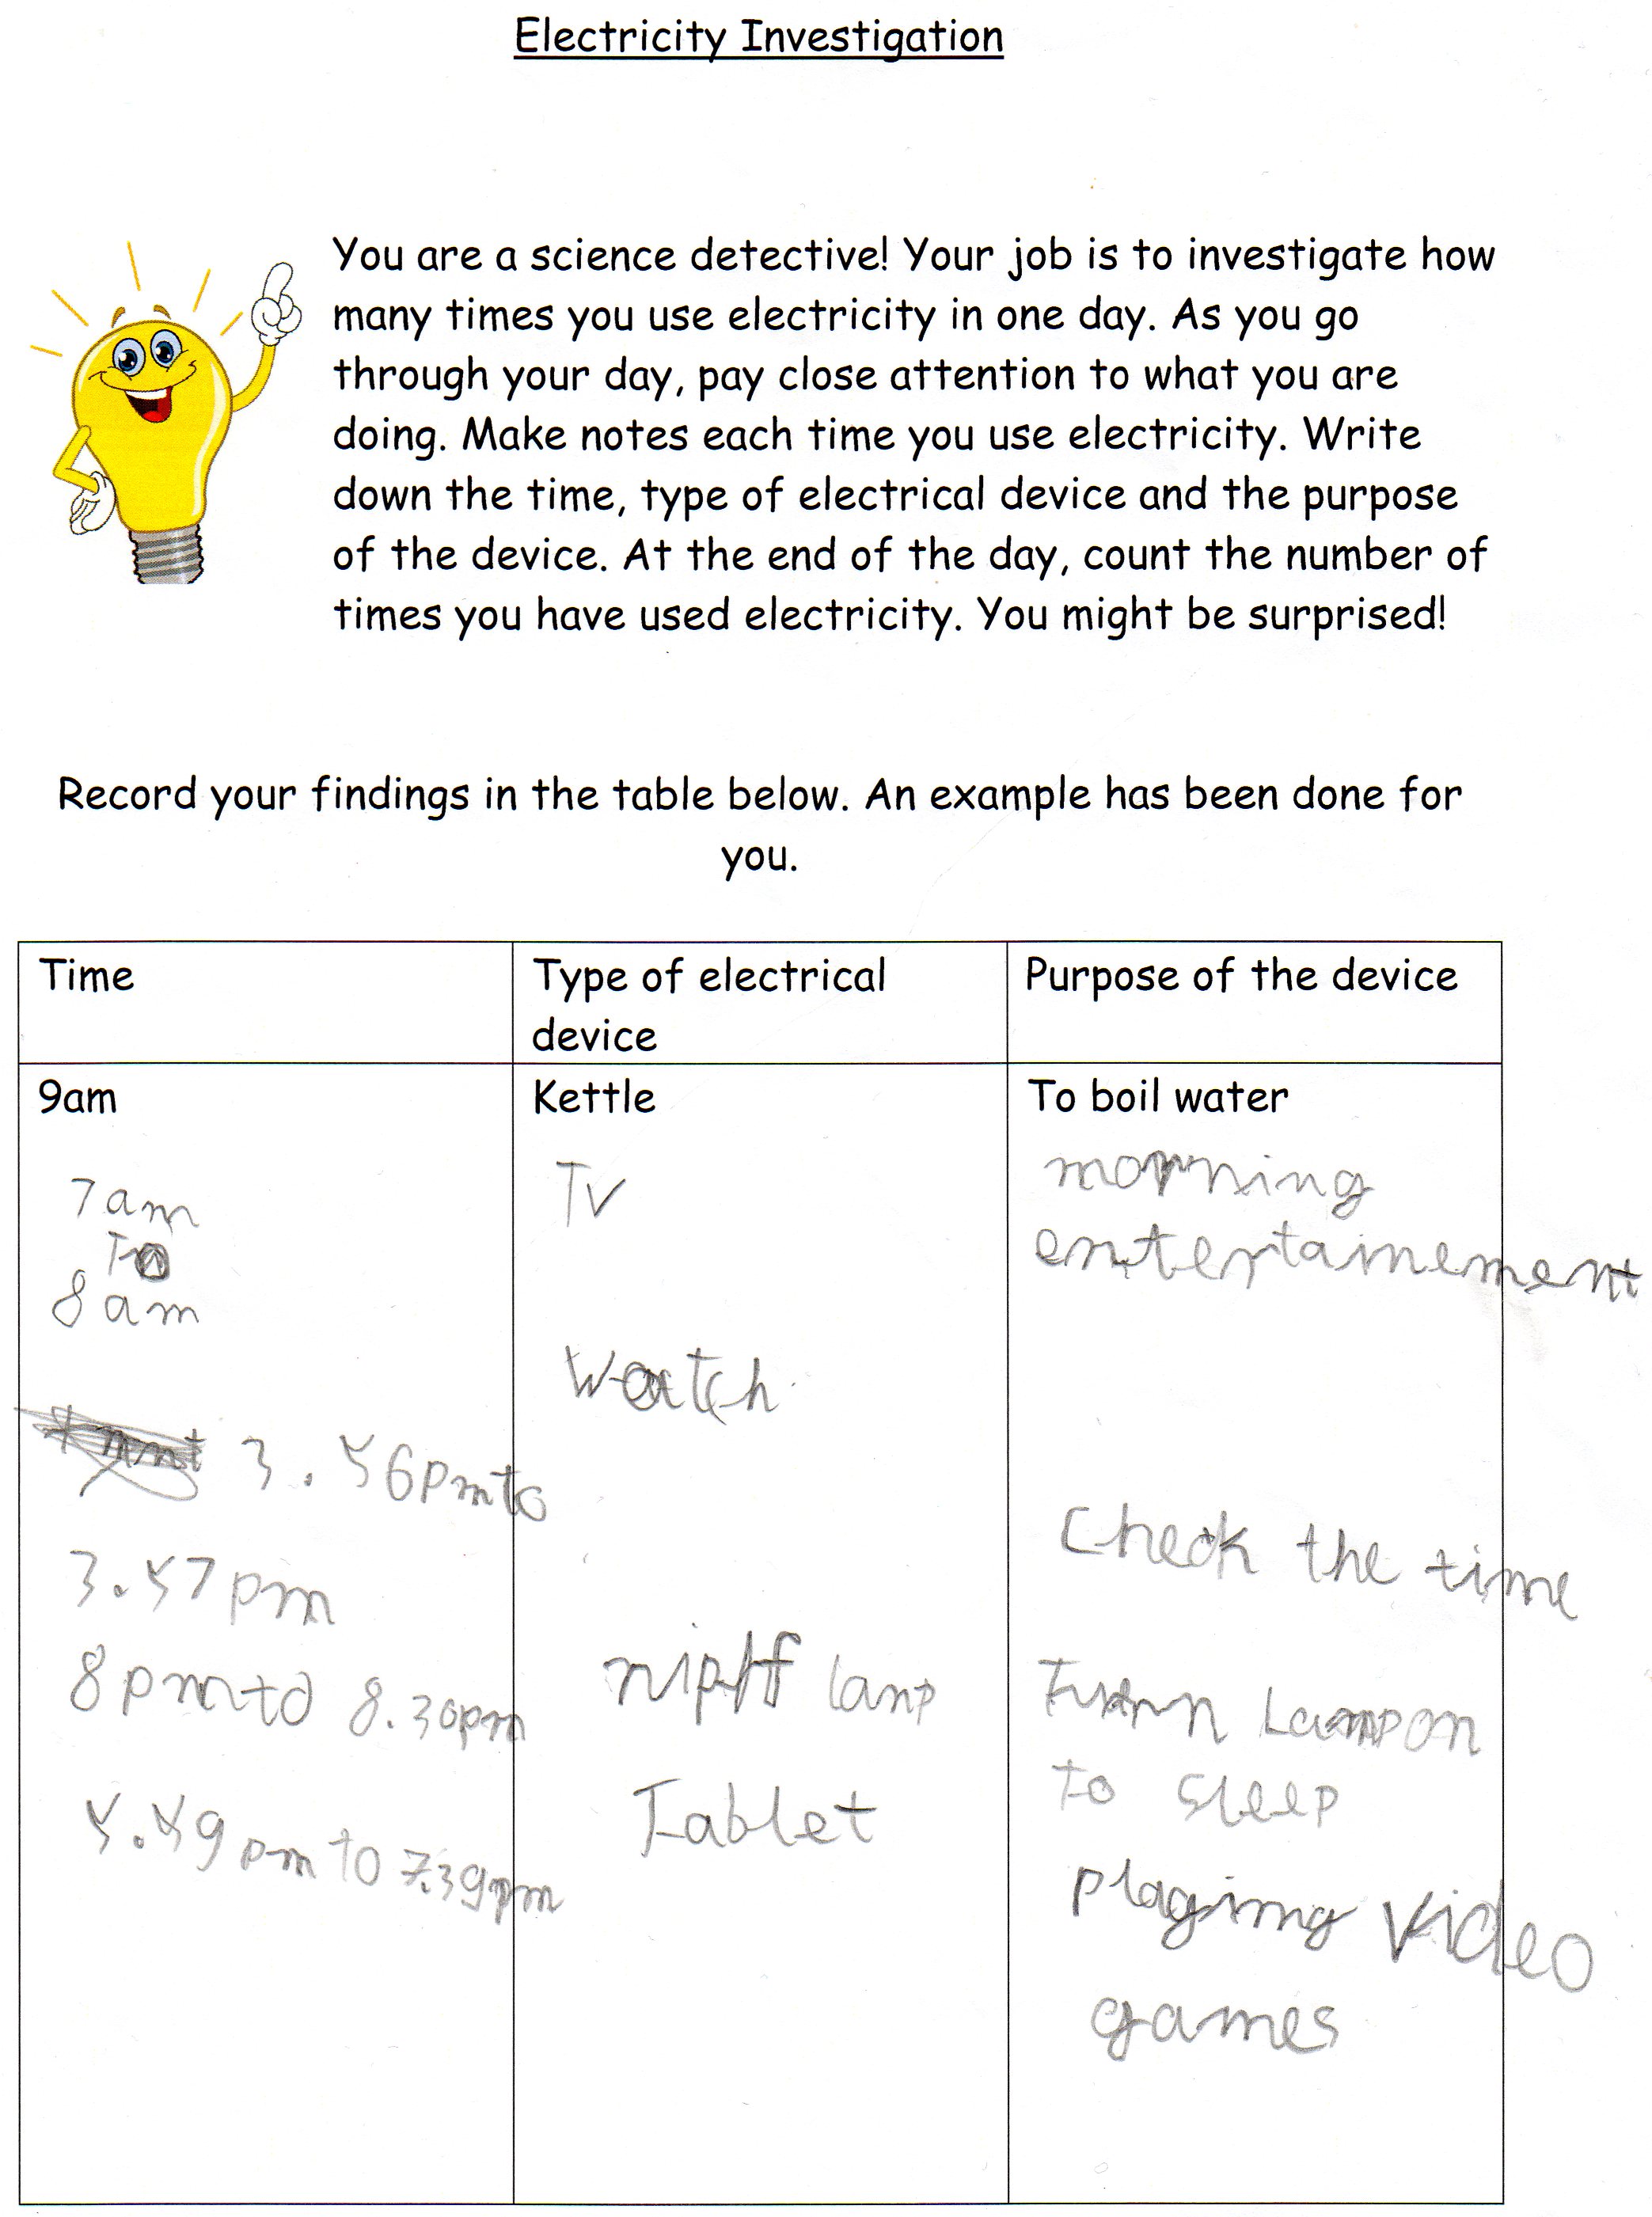 Electricity Investigation
You are a science detective! Your job is to investigate how
many times you use electricity in one day. As you go
through your day, pay close attention to what you are
doing. Make notes each time you use electricity. Write
down the time, type of electrical device and the purpose
of the device. At the end of the day, count the number of
times you have used electricity. You might be surprised!
Record your findings in the table below. An example has been done for
you.
Time
Type of electrical
device
Purpose of the device
9am
Kettle
To boil water
7am
To
8am
TV
morning
entertainement
3.56pm to
3.57pm
Watch
Check the time
8pm to 8.30pm
lamp
Turn Lamp on
to sleep
5.59pm to 7.39pm
Tablet
playing video
games